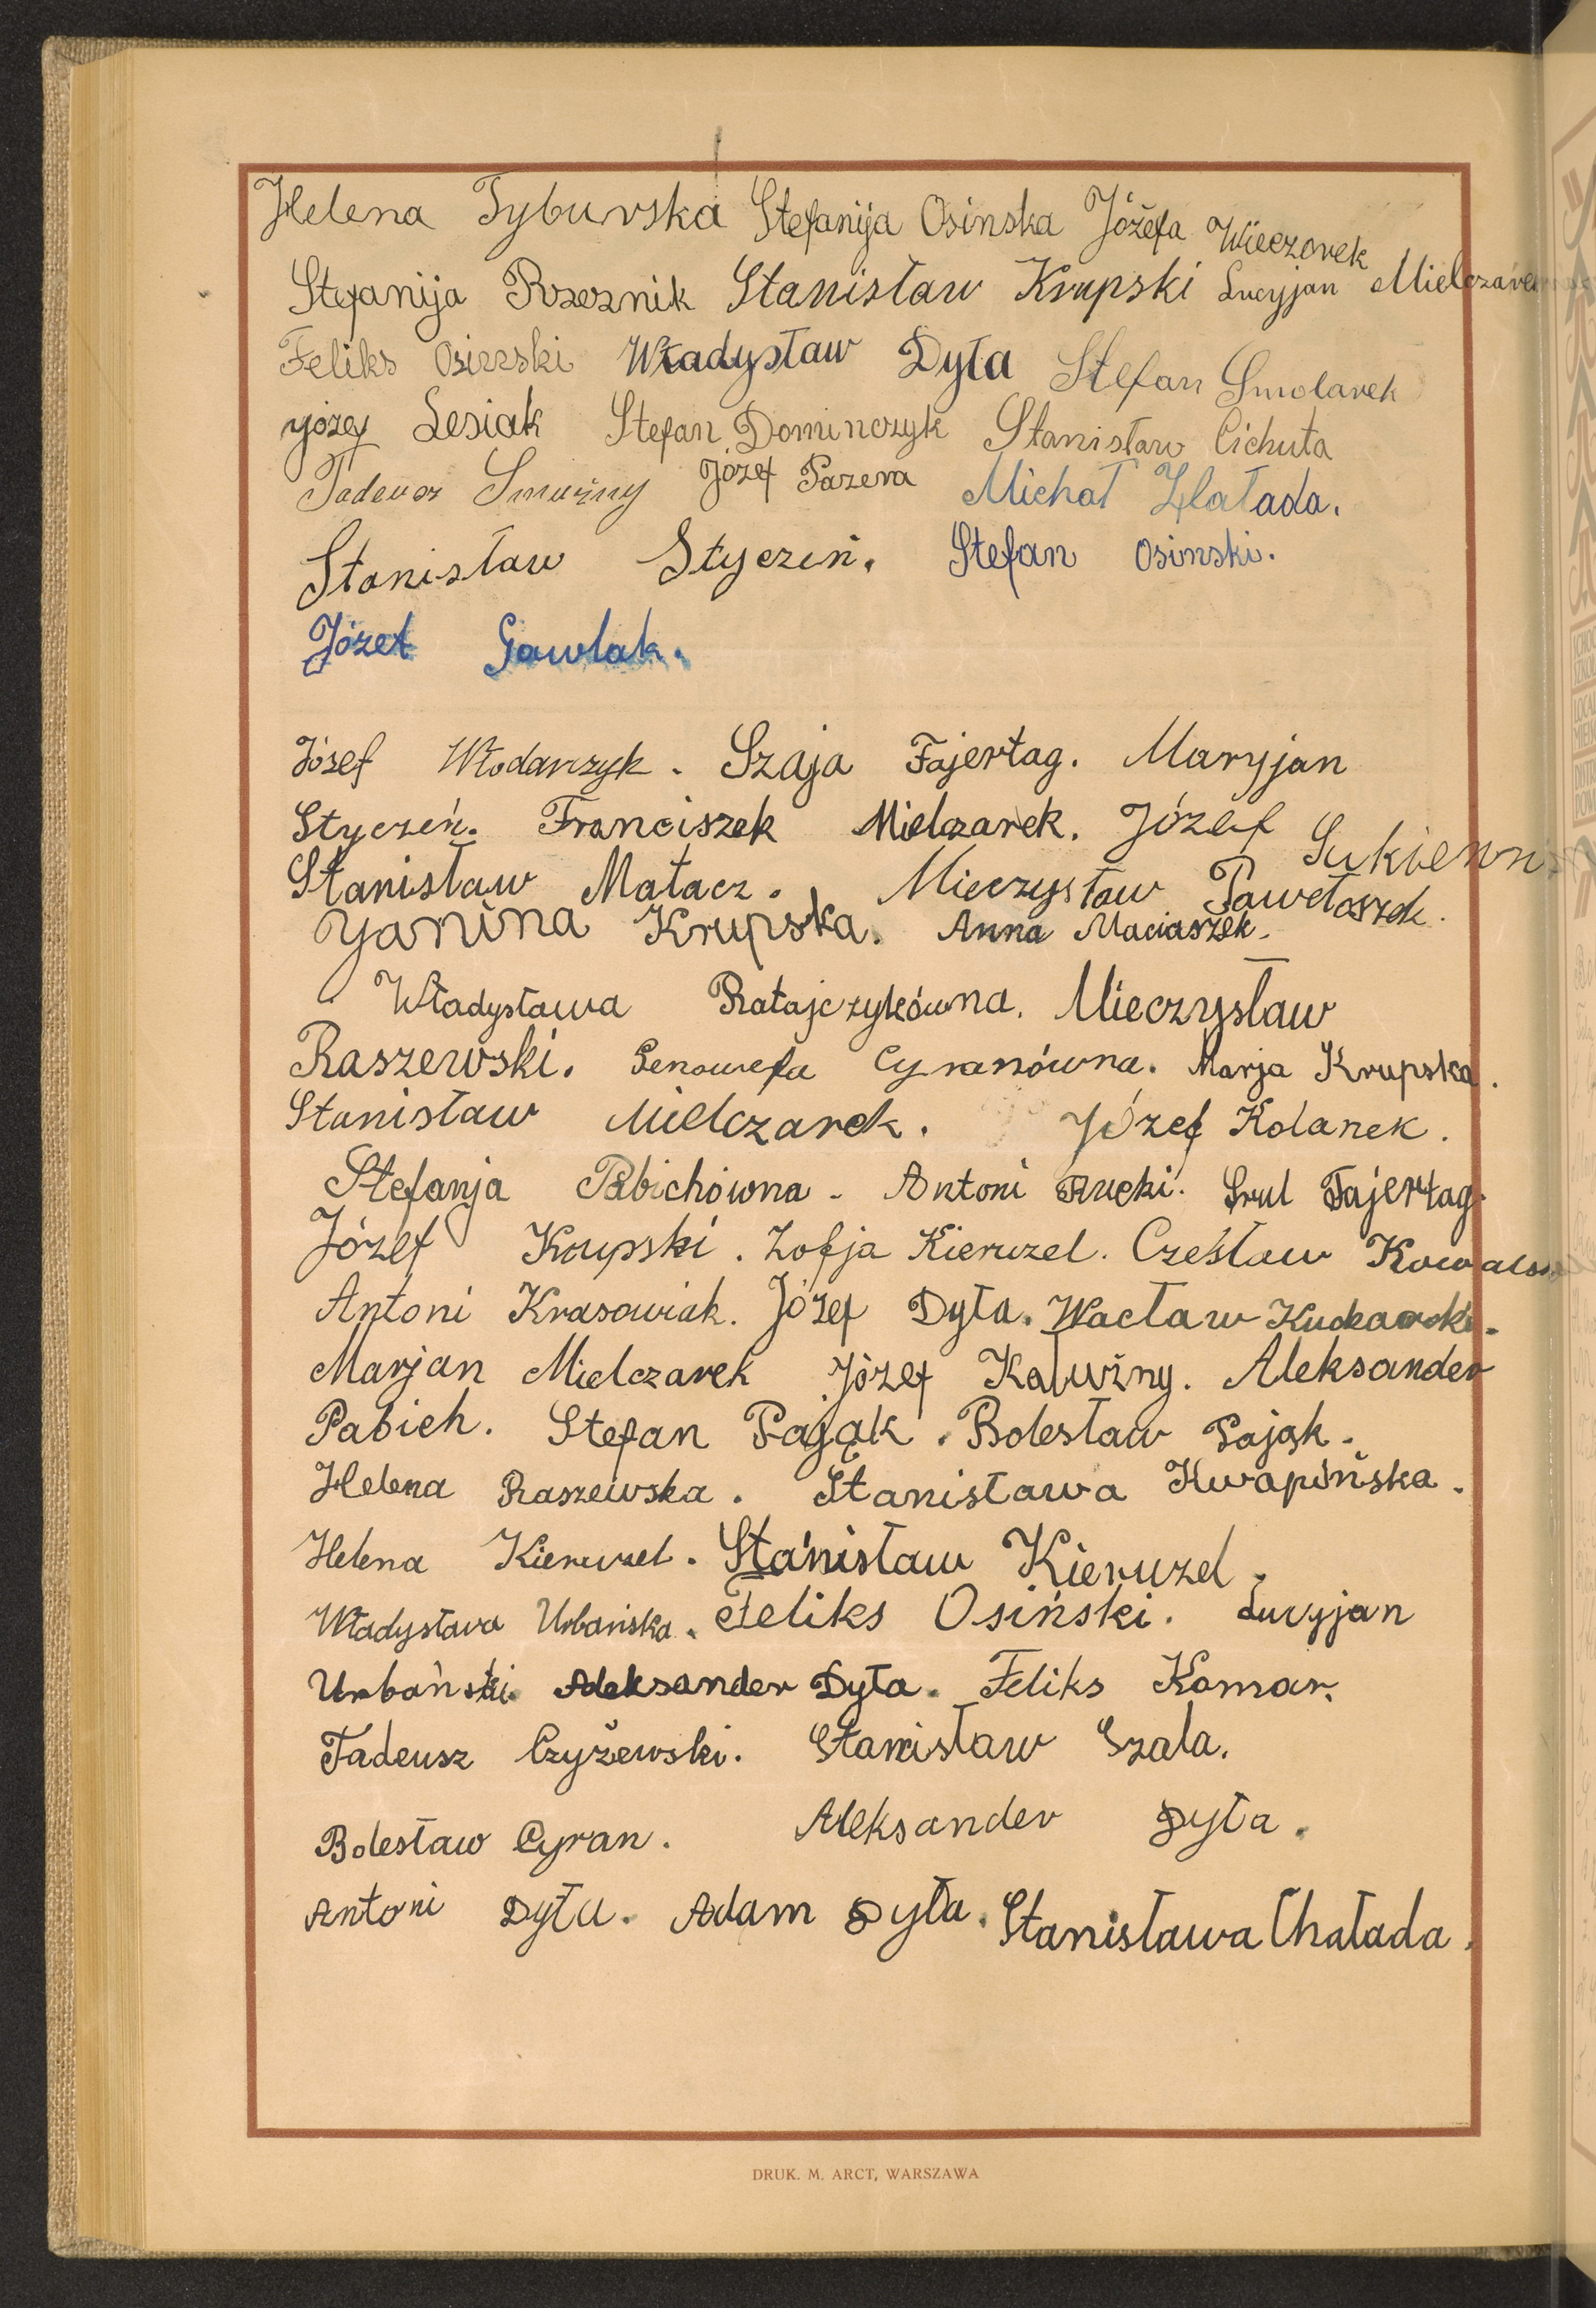 Helena Tyburska Stefanija Osinska Józefa Wieczorek
Stefanija Rzeznik Stanisław Krupski Lucyjan Mielczarek
Feliks Osinski Władysław Dyła Stefan Smolarek
Józef Lesiak Stefan Dominczyk Stanisław Cichuta
Tadeusz Smużny Józef Pazera Michał Hałada.
Stanisław Styczeń. Stefan Osinski.
Józef Gawlak.
Józef Włodarczyk. Szaja Fajertag. Maryjan
Styczeń. Franciszek Mielczarek. Józef Sukienn
Stanisław Matacz. Mieczysław Pawełoszek.
Yanina Krupska. Anna Maciaszek.
Władysława Ratajczykówna. Mieczysław
Raszewski. Genowefa Cyranówna. Marja Krupska.
Stanisław Mielczarek. Józef Kolanek.
Stefanja Pabichówna. Antoni Rucki. Srul Fajertag.
Józef Krupski. Zofja Kieruzel. Czesław
Antoni Krasowiak. Józef Dyła. Wacław
Marjan Mielczarek Józef Kałużny. Aleksander
Pabich. Stefan Pająk. Bolesław Pająk.
Helena Raszewska. Stanisława Kwapińska.
Helena Kieruzel. Stanisław Kieruzel.
Władysława Urbańska. Feliks Osiński. Lucyjan
Urbański. Aleksander Dyła. Feliks Komar.
Tadeusz Czyżewski. Stanisław Szala.
Bolesław Cyran. Aleksander Dyła.
Antoni Dyła. Adam Dyła. Stanisława Chałada.
DRUK. M. ARCT, WARSZAWA